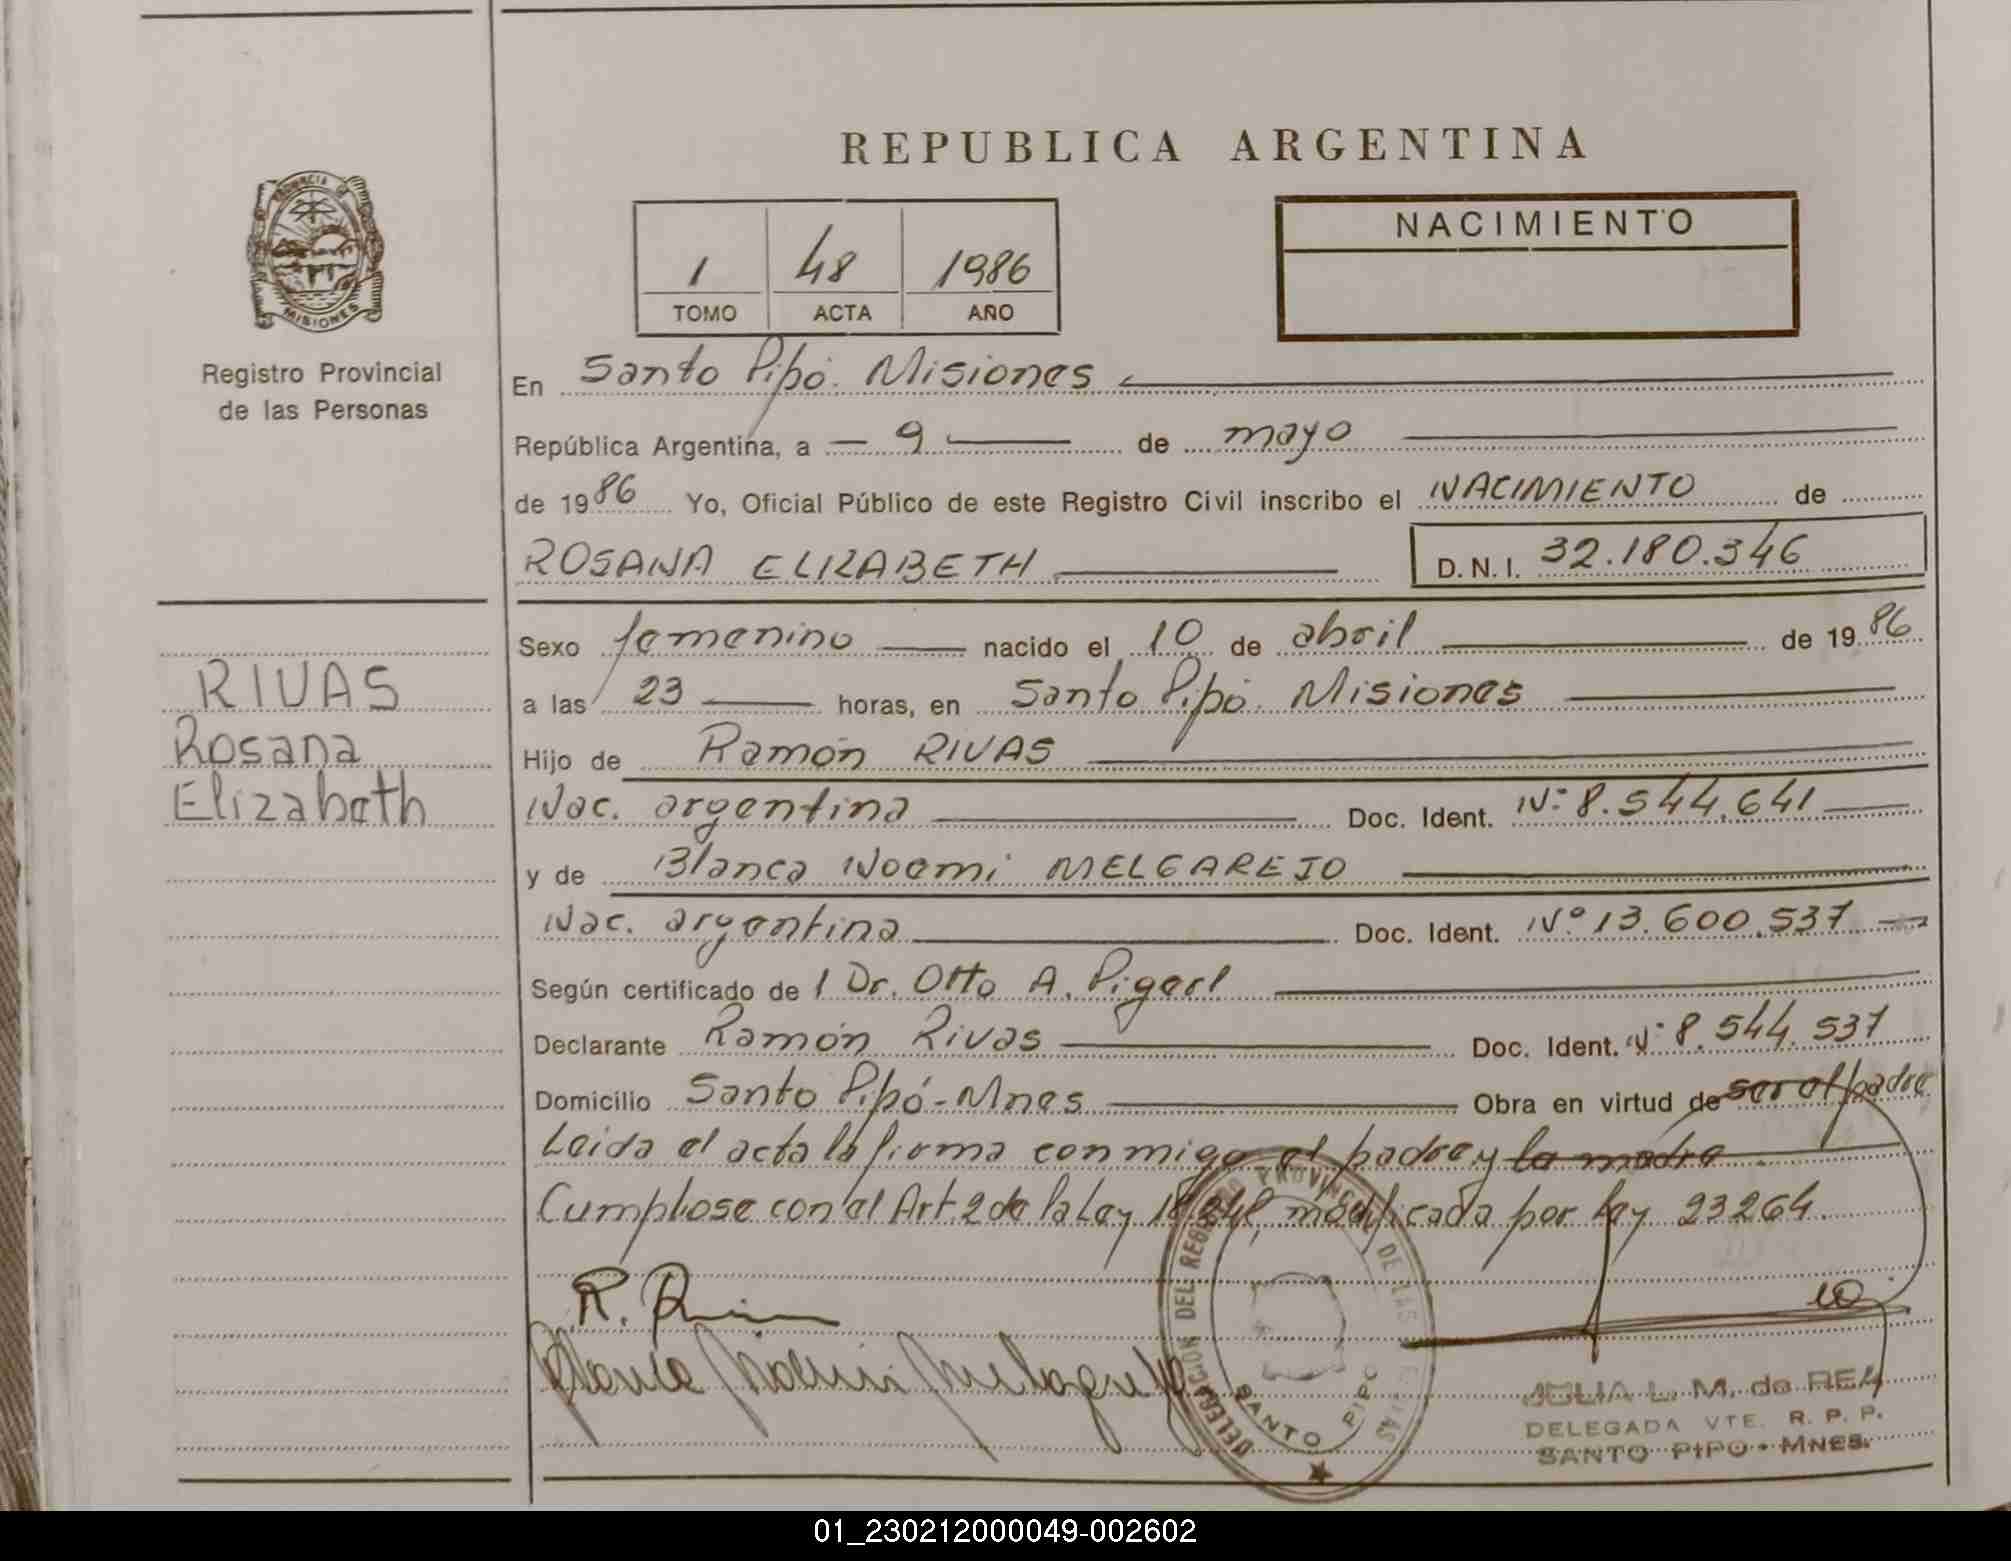 REPUBLICA ARGENTINA
PROVINCIA DE
MISIONES
Registro Provincial
de las Personas
1 48 1986
TOMO ACTA AÑO
NACIMIENTO
En Santo Pipó. Misiones
República Argentina, a 9 de mayo
de 1986 Yo, Oficial Público de este Registro Civil inscribo el NACIMIENTO de
ROSANA ELIZABETH D.N.I. 32.180.346
Sexo femenino nacido el 10 de abril de 1986
a las 23 horas, en Santo Pipó. Misiones
Hijo de Ramón RIVAS
Nac. argentina Doc. Ident. Nº 8.544.641
y de Blanca Noemi MELGAREJO
Nac. argentina Doc. Ident. Nº 13.600.537
Según certificado de l Dr. Otto A. Pigerl
Declarante Ramón Rivas Doc. Ident. Nº 8.544.537
Domicilio Santo Pipó-Mnes Obra en virtud de ser el padre
Leida el acta la firma conmigo el padre y la madre
Cumpliose con el Art 2 de la Ley 18248, modificada por ley 23264.
RIVAS
Rosana
Elizabeth
R. Rivas
DELEGACION DEL REGISTRO PROVINCIAL DE LAS PERSONAS
SANTO PIPO
JULIA L. M. de REA
DELEGADA VTE. R. P. P.
SANTO PIPO - MNES.
01_230212000049-002602